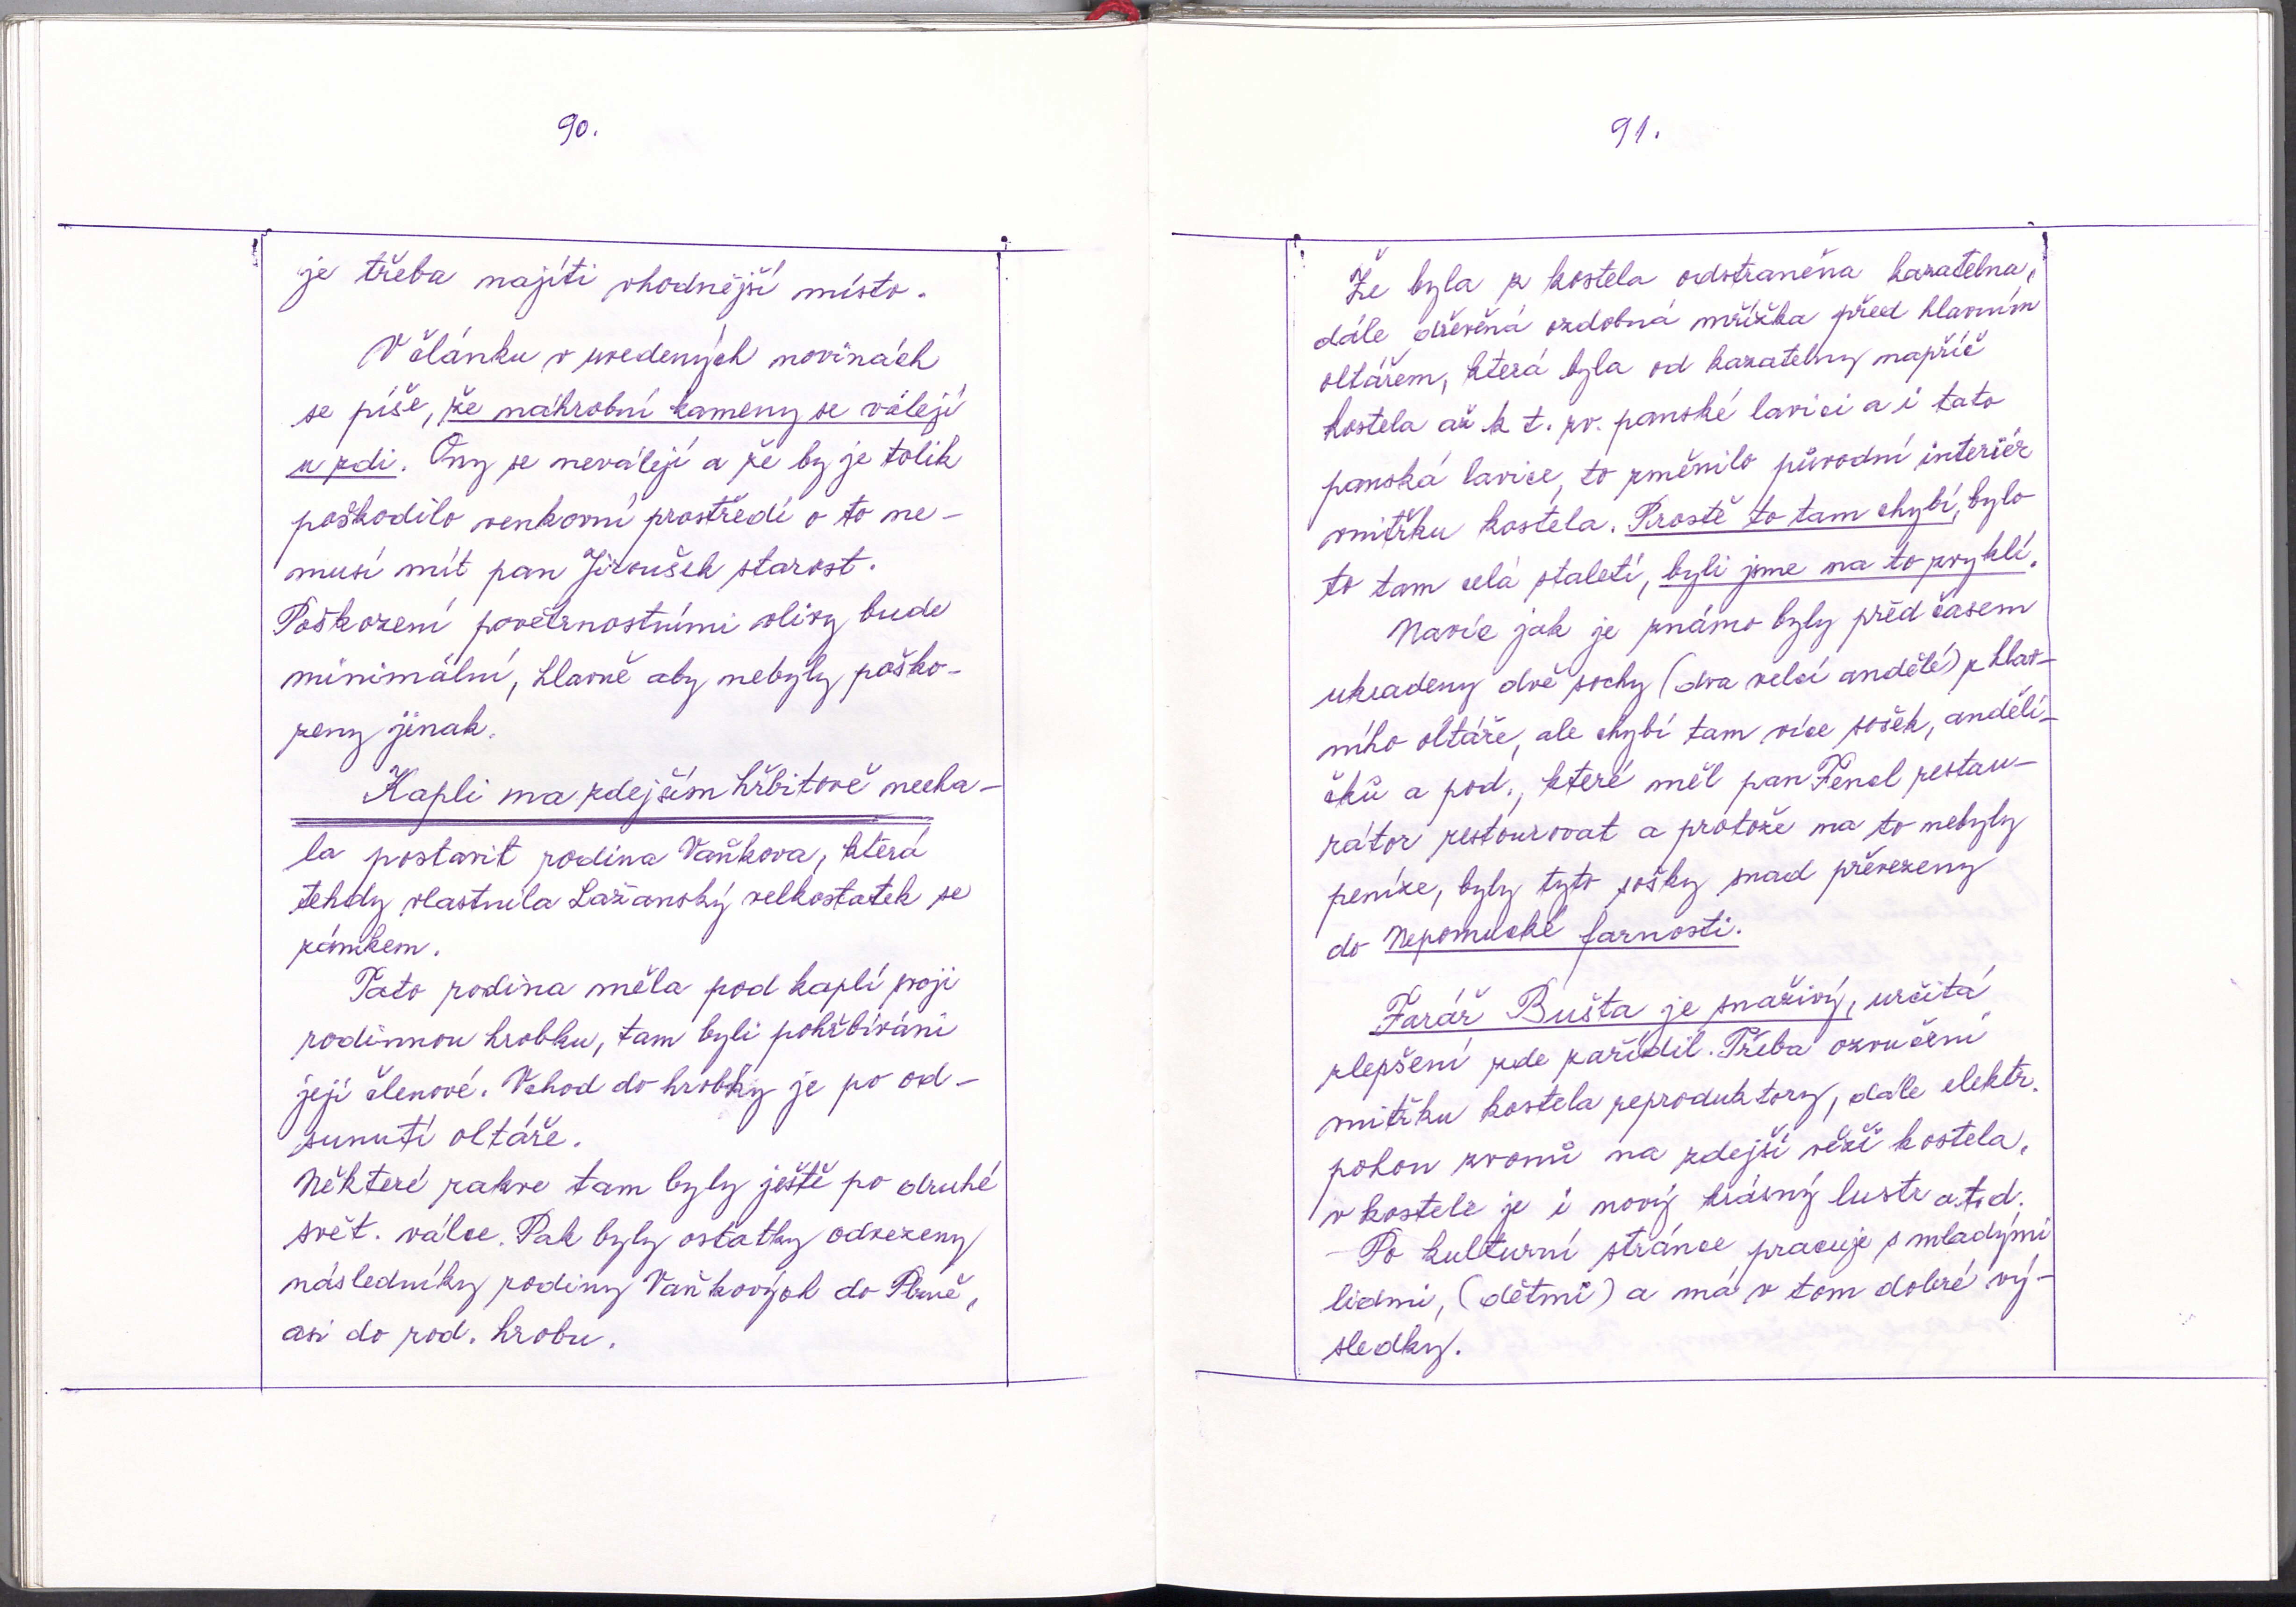 90.
je třeba najíti vhodnější místo.
V článku v uvedených novinách
se píše, že náhrobní kameny se válejí
u zdi. Ony se neválejí a že by je tolik
poškodilo venkovní prostředí o to ne-
musí mít pan Jiroušek starost.
Poškození povětrnostními vlivy bude
minimální, hlavně aby nebyly poško-
zeny jinak.
Kapli na zdejším hřbitově necha-
la postavit rodina Vaňkova, která
tehdy vlastnila Lažanský velkostatek se
zámkem.
Tato rodina měla pod kaplí svoji
rodinnou hrobku, tam byli pohřbíváni
její členové. Vchod do hrobky je po od-
sunutí oltáře.
Některé rakve tam byly ještě po druhé
svět. válce. Pak byly ostatky odvezeny
následníky rodiny Vaňkových do Plzně,
asi do rod. hrobu.
91.
Že byla z kostela odstraněna kazatelna,
dále dřevěná ozdobná mřížka před hlavním
oltářem, která byla od kazatelny napříč
kostela až k t. zv. panské lavici a i tato
panská lavice, to změnilo původní interiér
vnitřku kostela. Prostě to tam chybí, bylo
to tam celá staletí, byli jsme na to zvyklí.
Navíc jak je známo byly před časem
ukradeny dvě sochy (dva velcí andělé) z hlav-
ního oltáře, ale chybí tam více sošek, andělí-
čků a pod., které měl pan Fencl restau-
rátor restourovat a protože na to nebyly
peníze, byly tyto sošky snad převezeny
do Nepomucké farnosti.
Farář Bušta je snaživý, určitá
zlepšení zde zařídil. Třeba ozvučení
vnitřku kostela reproduktory, dále elektr.
pohon zvonů na zdejší věži kostela,
v kostele je i nový krásný lustr a.t.d.
- Po kulturní stránce pracuje s mladými
lidmi, (dětmi) a má v tom dobré vý-
sledky.